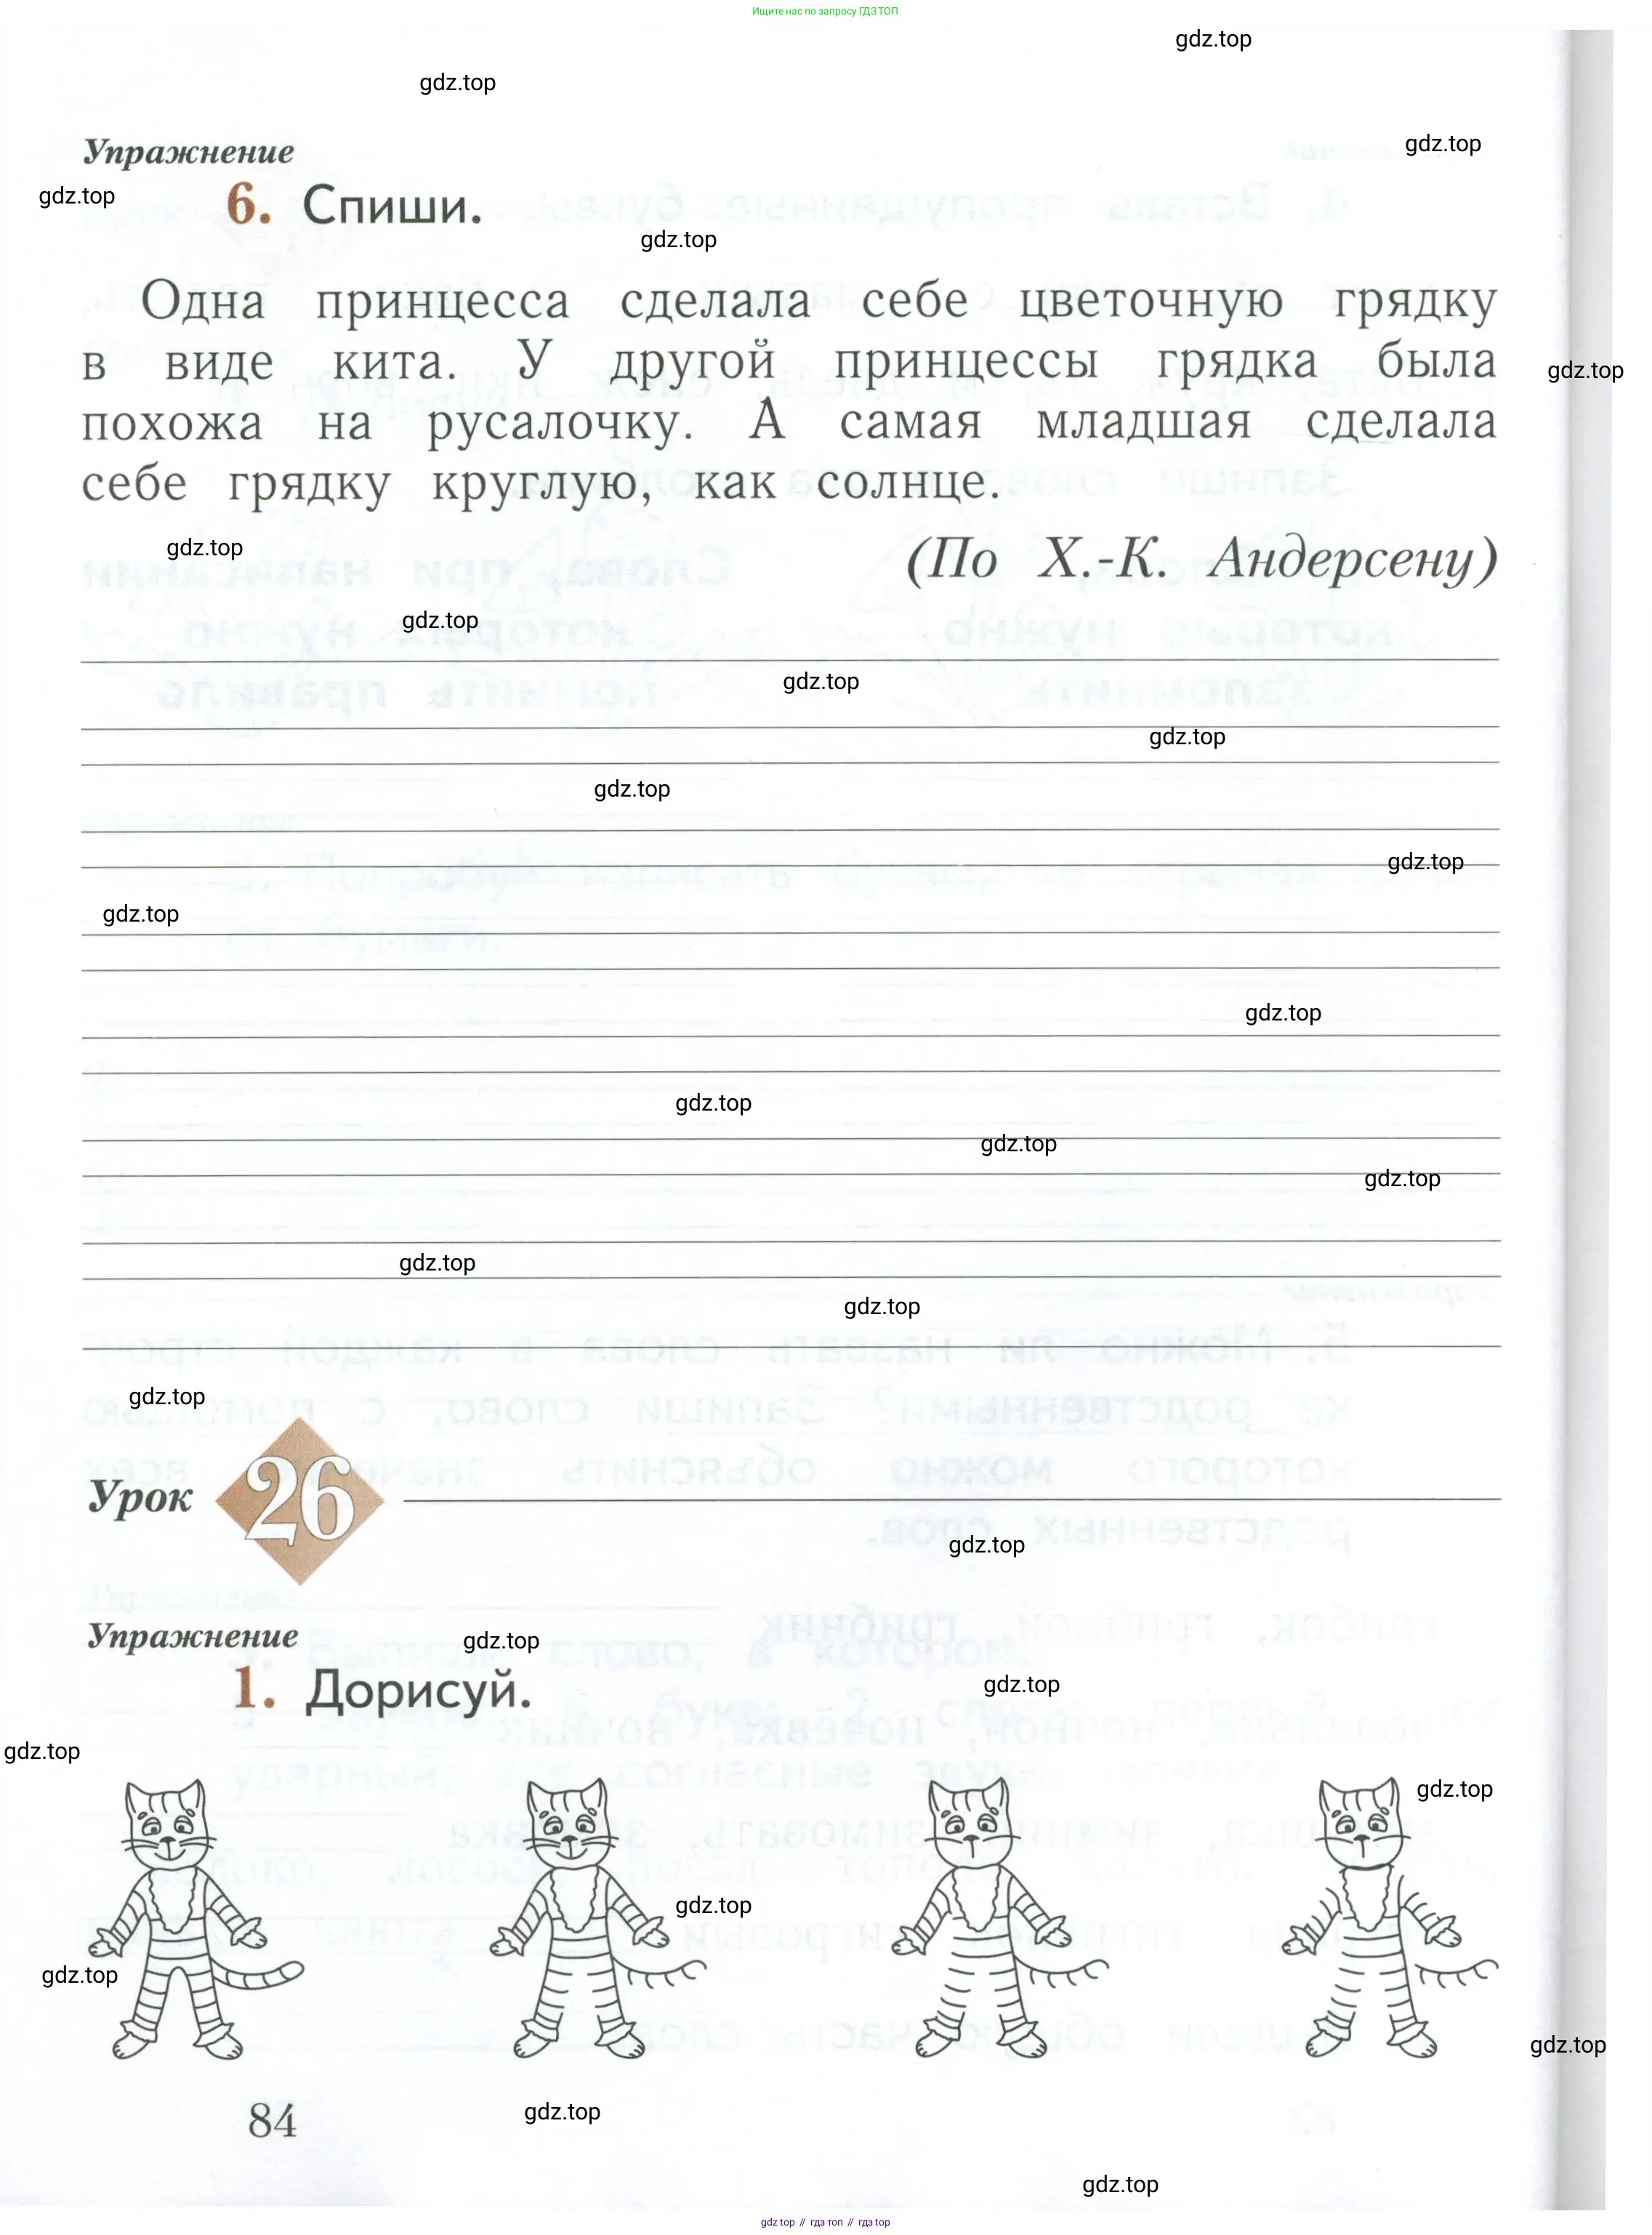 Ищите нас по запросу ГДЗ ТОП
gdz.top
gdz.top
gdz.top
Упражнение
gdz.top
6. Спиши.
gdz.top
Одна принцесса сделала себе цветочную грядку
в виде кита. У другой принцессы грядка была
gdz.top
похожа на русалочку. А самая младшая сделала
себе грядку круглую, как солнце.
gdz.top
(По Х.-К. Андерсену)
gdz.top
gdz.top
gdz.top
gdz.top
gdz.top
gdz.top
gdz.top
gdz.top
gdz.top
gdz.top
gdz.top
gdz.top
gdz.top
Урок 26
gdz.top
Упражнение
gdz.top
1. Дорисуй.
gdz.top
gdz.top
gdz.top
gdz.top
gdz.top
gdz.top
84
gdz.top
gdz.top
gdz.top // гдз топ // гдз top